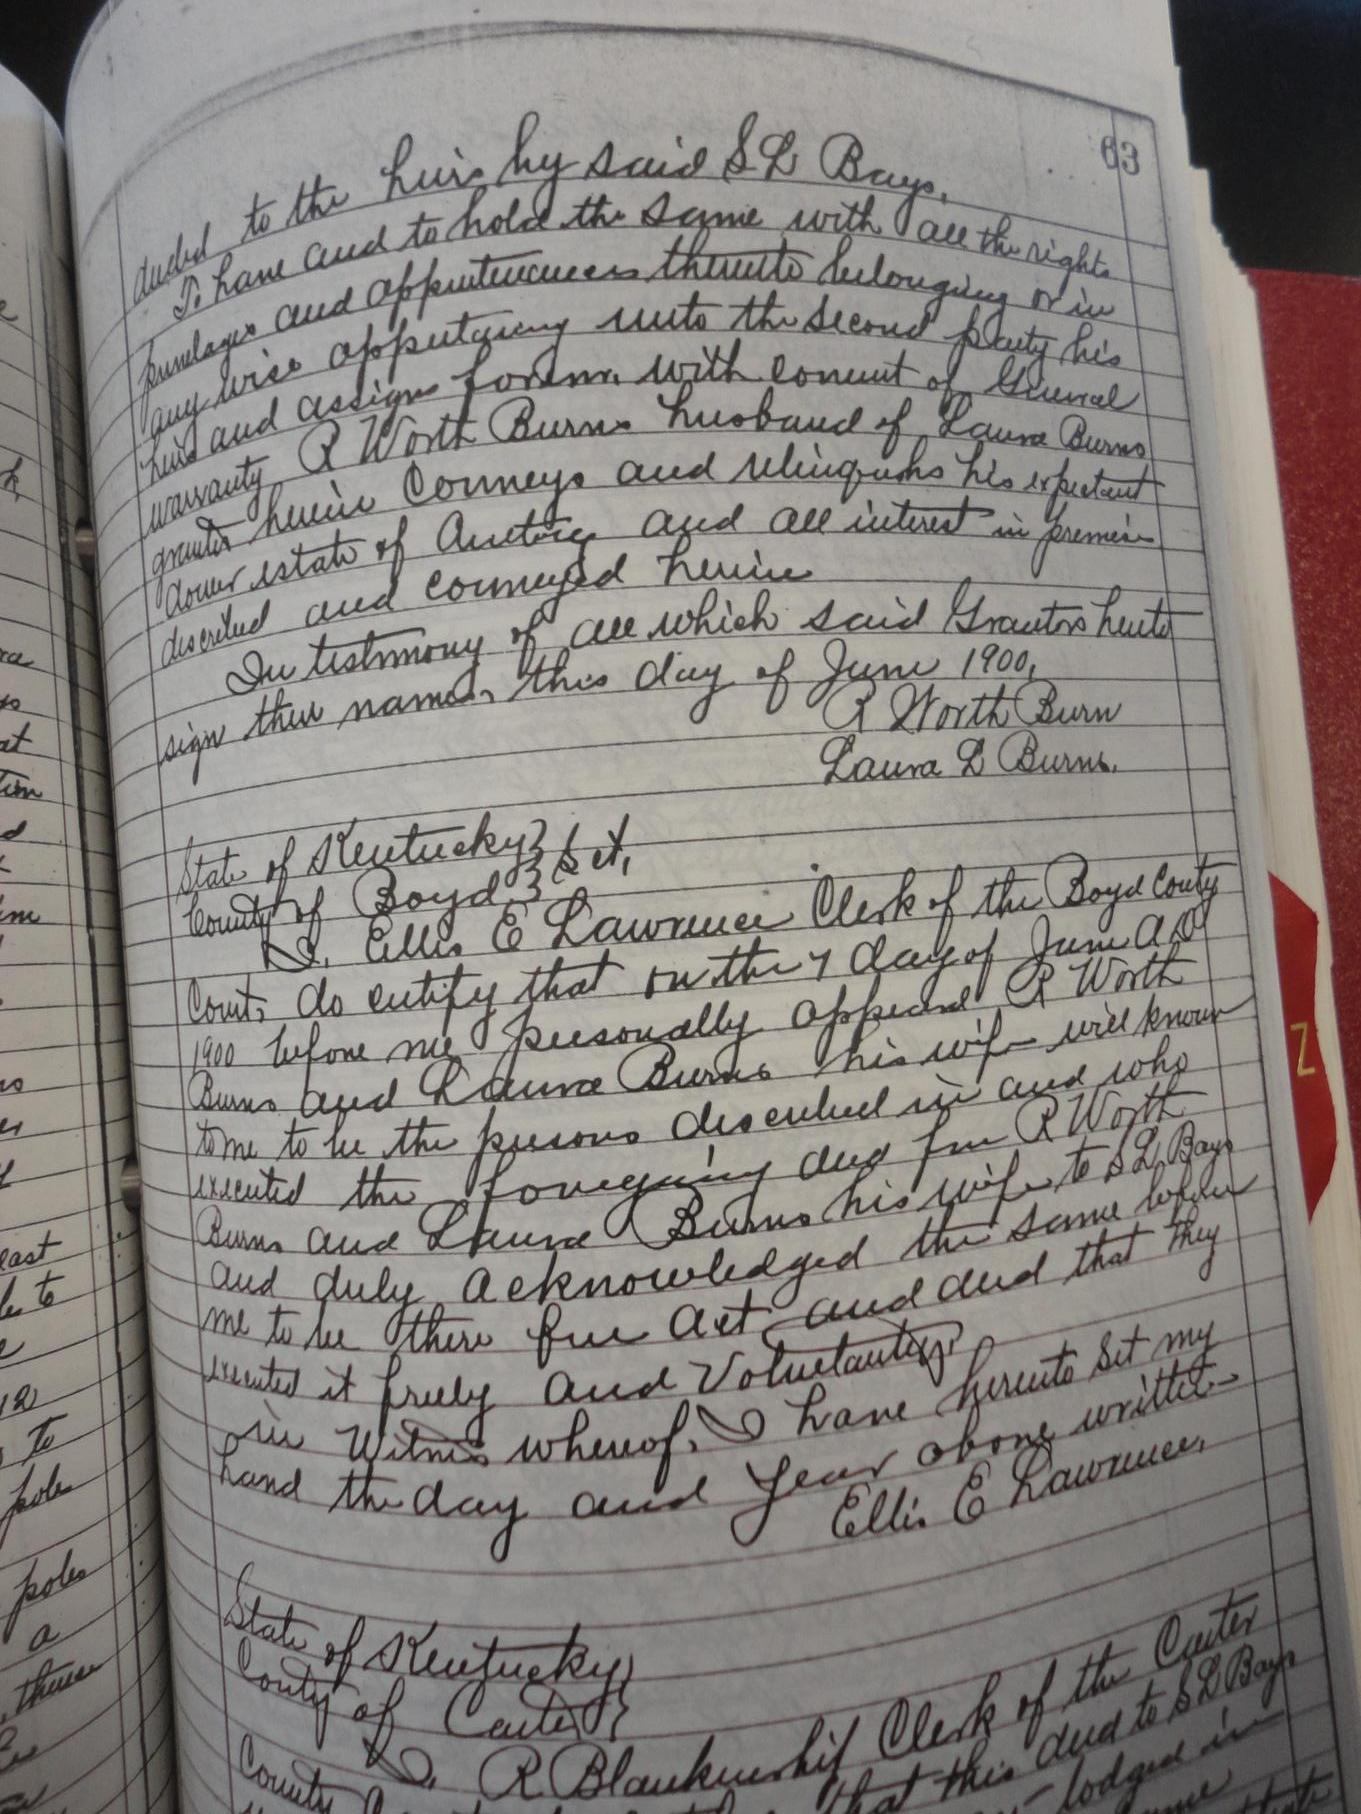 63
deeded to the heirs by said S L Bays.
To have and to hold the same with all the rights
priveleges and appurtenances thereto belonging or in
any wise appertaining unto the second party his
heirs and assigns forever, with covenant of General
warranty R Worth Burns husband of Laura Burns
grantor herein Conveys and relinquishs his expectant
dower estate of and all interest in premises
described and conveyed herein
In testimony of all which said Grantors hereto
sign their names, this day of June 1900,
R Worth Burn
Laura L Burns.
State of Kentucky } Sct,
County of Boyd }
I, Ellis E Lawrence Clerk of the Boyd Conty
Court, do certify that on the 7 day of June A D
1900 before me personally appeard R Worth
Burns and Laura Burns his wife well known
to me to be the persons described in and who
executed the foregoing deed from R Worth
Burns and Laura Burns his wife to S L Bays
and duly acknowledged the same before
me to be there free act and deed that they
executed it freely and Voluntarily.
in Witness whereof, I have hereunto set my
hand the day and year above written
Ellis E Lawrence.
State of Kentucky }
Conty of Carter }
I, R Blankenship Clerk of the Carter
County that this deed to S L Bays
lodged in
Z
east
to
pole
poles
a
thence